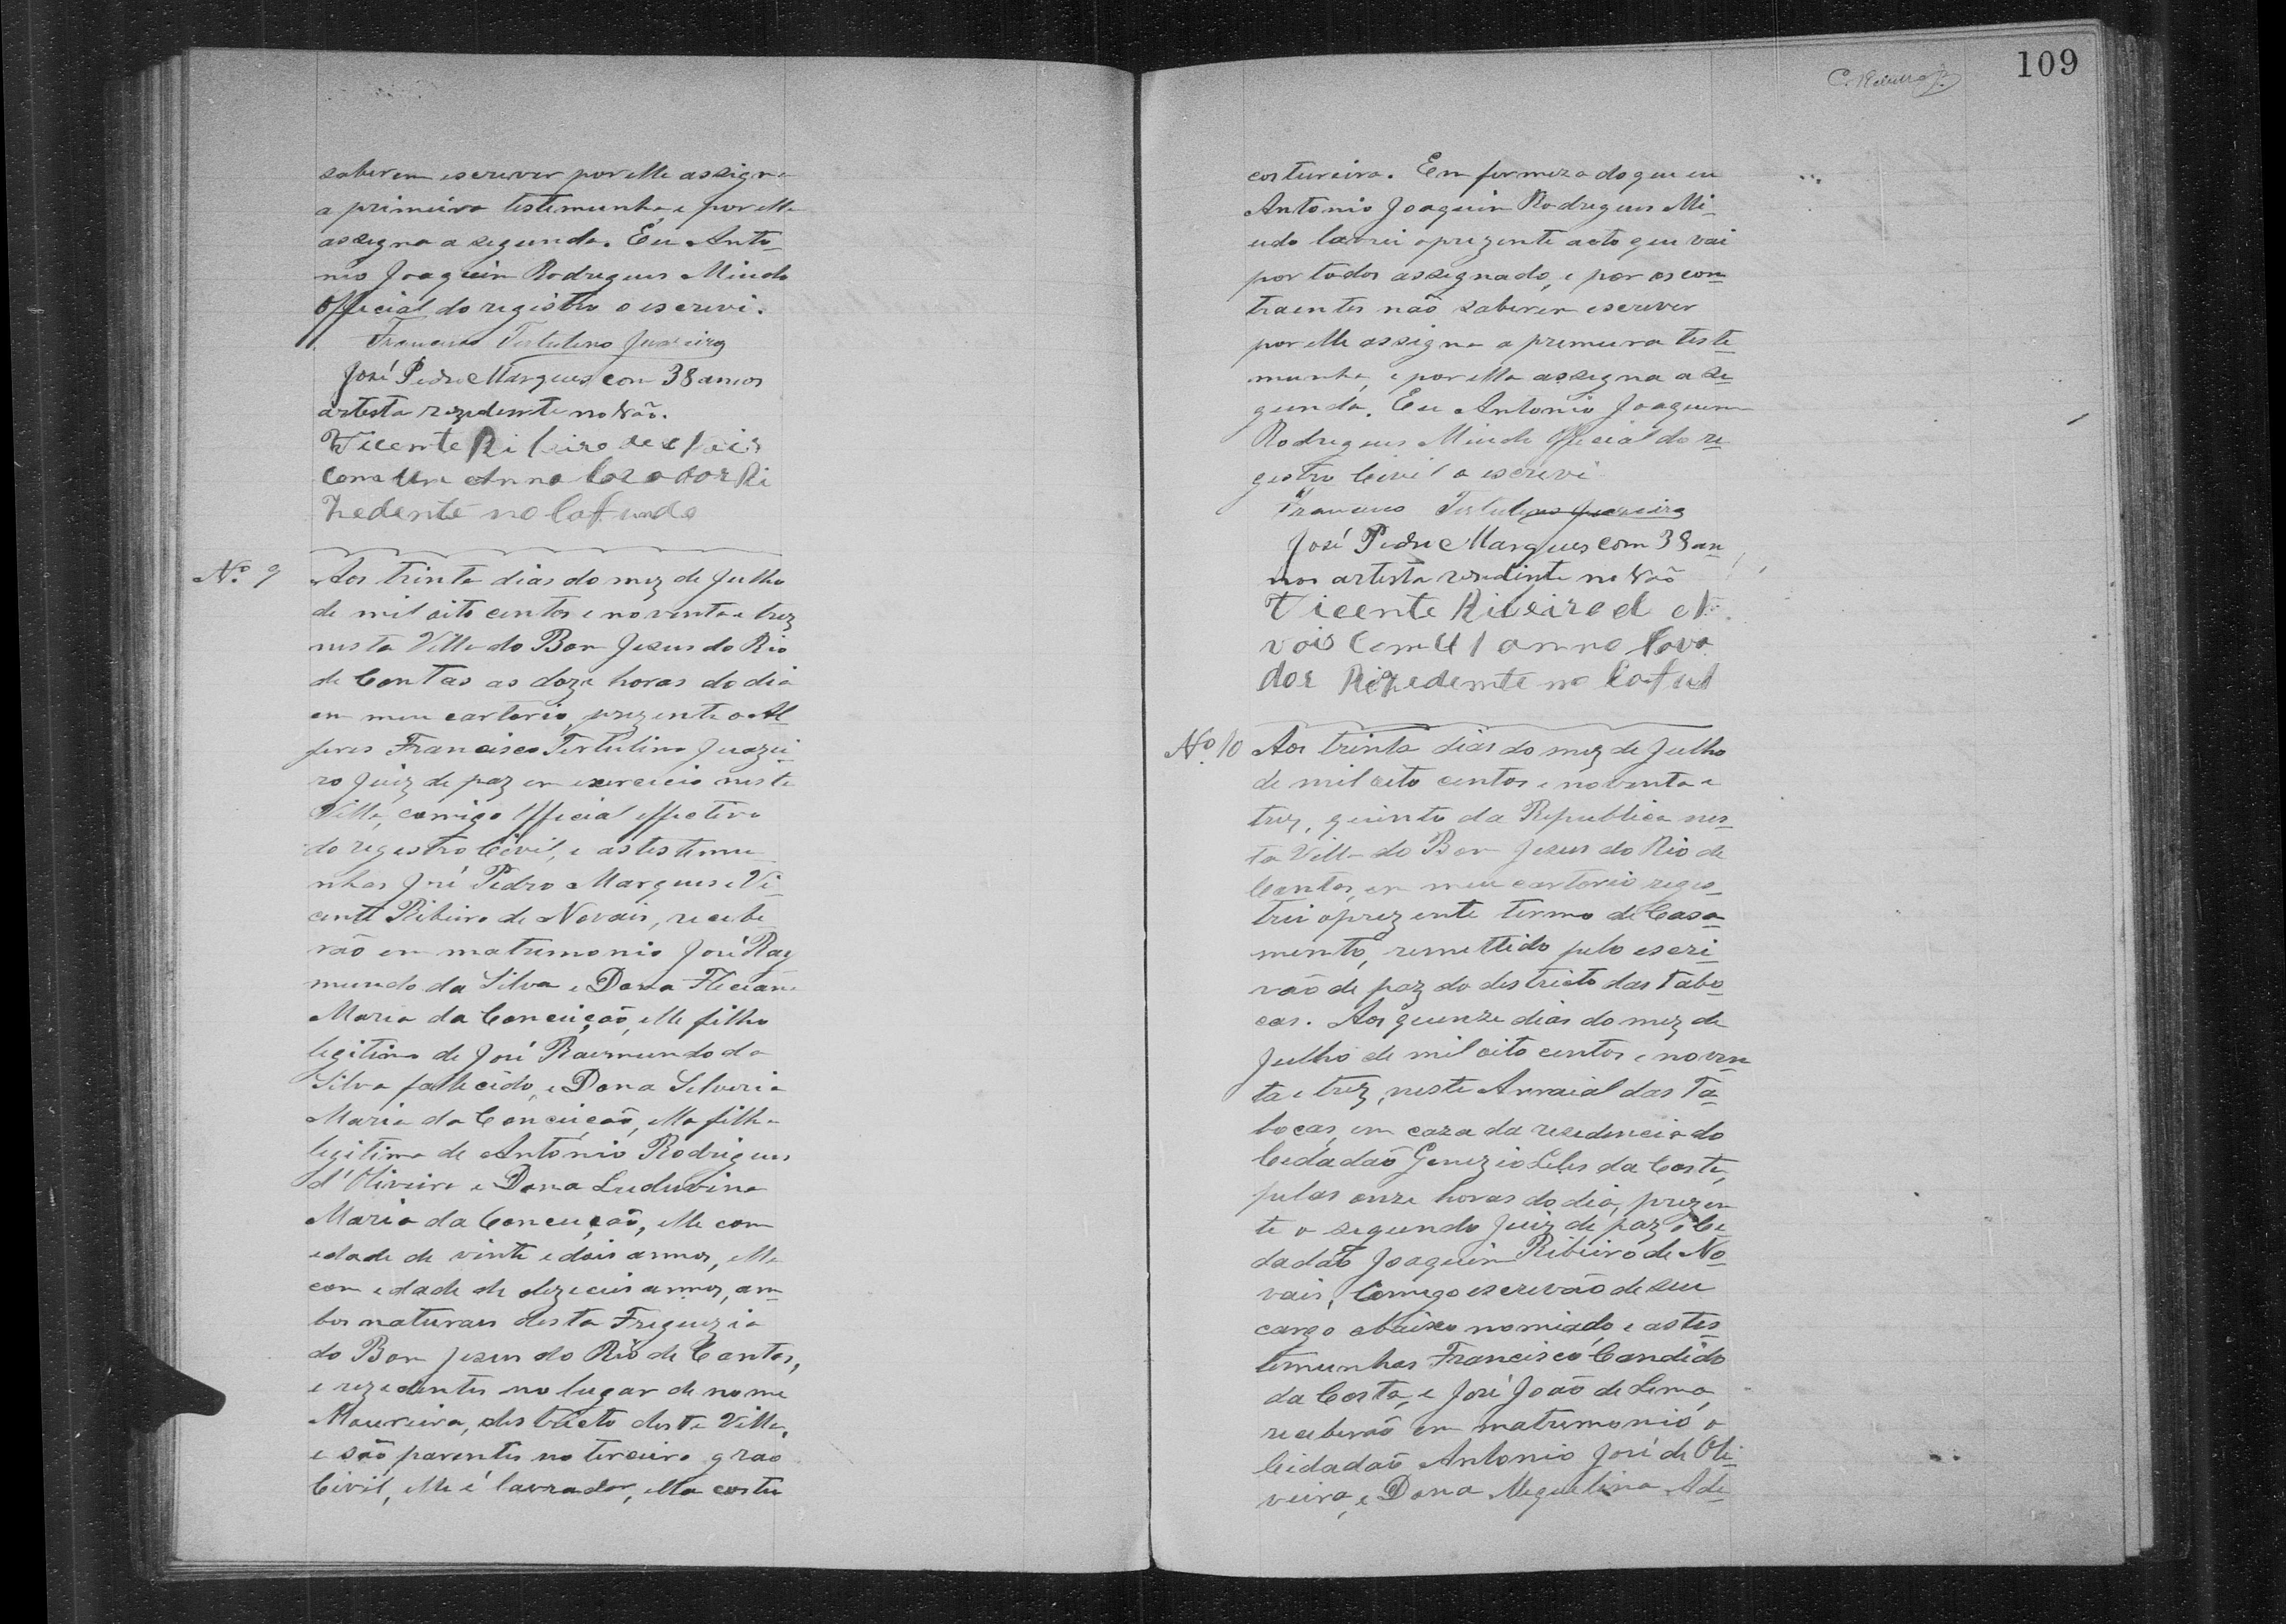 saberem escrever por elle assigna
a primeira testemunha, e por ella
assigna a segunda. Eu Anto-
nio Joaquim Rodrigues Miudo
Official do registro o escrevi.
Francisco Tertulino Juazeiro
José Pedro Marques com 38 annos
artista rezidente no Vão.
Vicente Ribeiro de
com um Anno Lavrador Ri
zedente no Cafundo
Nº. 9
Aos trinta dias do mez de Julho
de mil oito centos e noventa e trez
nesta Villa do Bom Jezus do Rio
de Contas as doze horas do dia
em meu cartorio, prezente o Al-
feres Francisco Tertulino Juazei-
ro Juiz de paz em exercicio nesta
Villa, comigo Official effectivo
do registro Civil, e as testemu-
nhas José Pedro Marques e Vi-
cente Ribeiro de Novais, recebe-
rão em matrimonio José Ray
mundo da Silva e Dona Feleciana
Maria da Conceição, elle filho
legitimo de José Raimundo da
Silva fallecido, e Dona Silveria
Maria da Conceição, ella filha
legitima de António Rodrigues
d'Oliveira e Dona Luduvina
Maria da Conceição, elle com
edade de vinte e dois annos, ella
com edade de dezeceis annos, am-
bos naturaes desta Freguezia
do Bom Jezus do Rio de Contas,
e rezedentes no lugar de nome
districto desta Villa,
e são parentes no terceiro grao
Civil, elle é lavrador, ella costu
109
costureira. Em firmeza do que eu
Antonio Joaquim Rodrigues Mi-
udo lavrei o prezente acto que vai
por todos assignado, e por os con-
traentes não saberem escrever
por elle assigna a primeira teste-
munha, e por ella assigna a se-
gunda. Eu Antonio Joaquim
Rodrigues Miudo Official do re-
gistro Civil o escrevi
Francisco Tertulino Juazeiro
José Pedro Marques com 38 an
nos artista rezidente no Vão
Vicente Ribeiro de No
vais Com 41 anno Lavra
dor Rizedemte no Cafud
Nº. 10
Aos trinta dias do mez de Julho
de mil oito centos e noventa e
trez, quinto da Republica nes-
ta Villa do Bom Jezus do Rio de
Contas, em meu cartorio regis-
trei o prezente termo de Casa-
mento, remettido pelo escri-
vão de paz do destricto das Tabo-
cas. Aos quinze dias do mez de
Julho de mil oito centos e noven-
ta e trez, neste Arraial das Ta-
bocas, em caza da rezedencia do
Cedadão Genezio Leles da Costa,
pelas onze horas do dia, prezen-
te o segundo Juiz de paz o Ce-
dadão Joaquim Ribeiro de No-
vais, Comego escrevão de seu
cargo abaixo nomiado, e as tes-
temunhas Francisco Candido
da Costa, e José João de Lima,
receberão em matrimonio o
Cidadão Antonio José de Oli-
veira, e Dona Miguelina Ade-